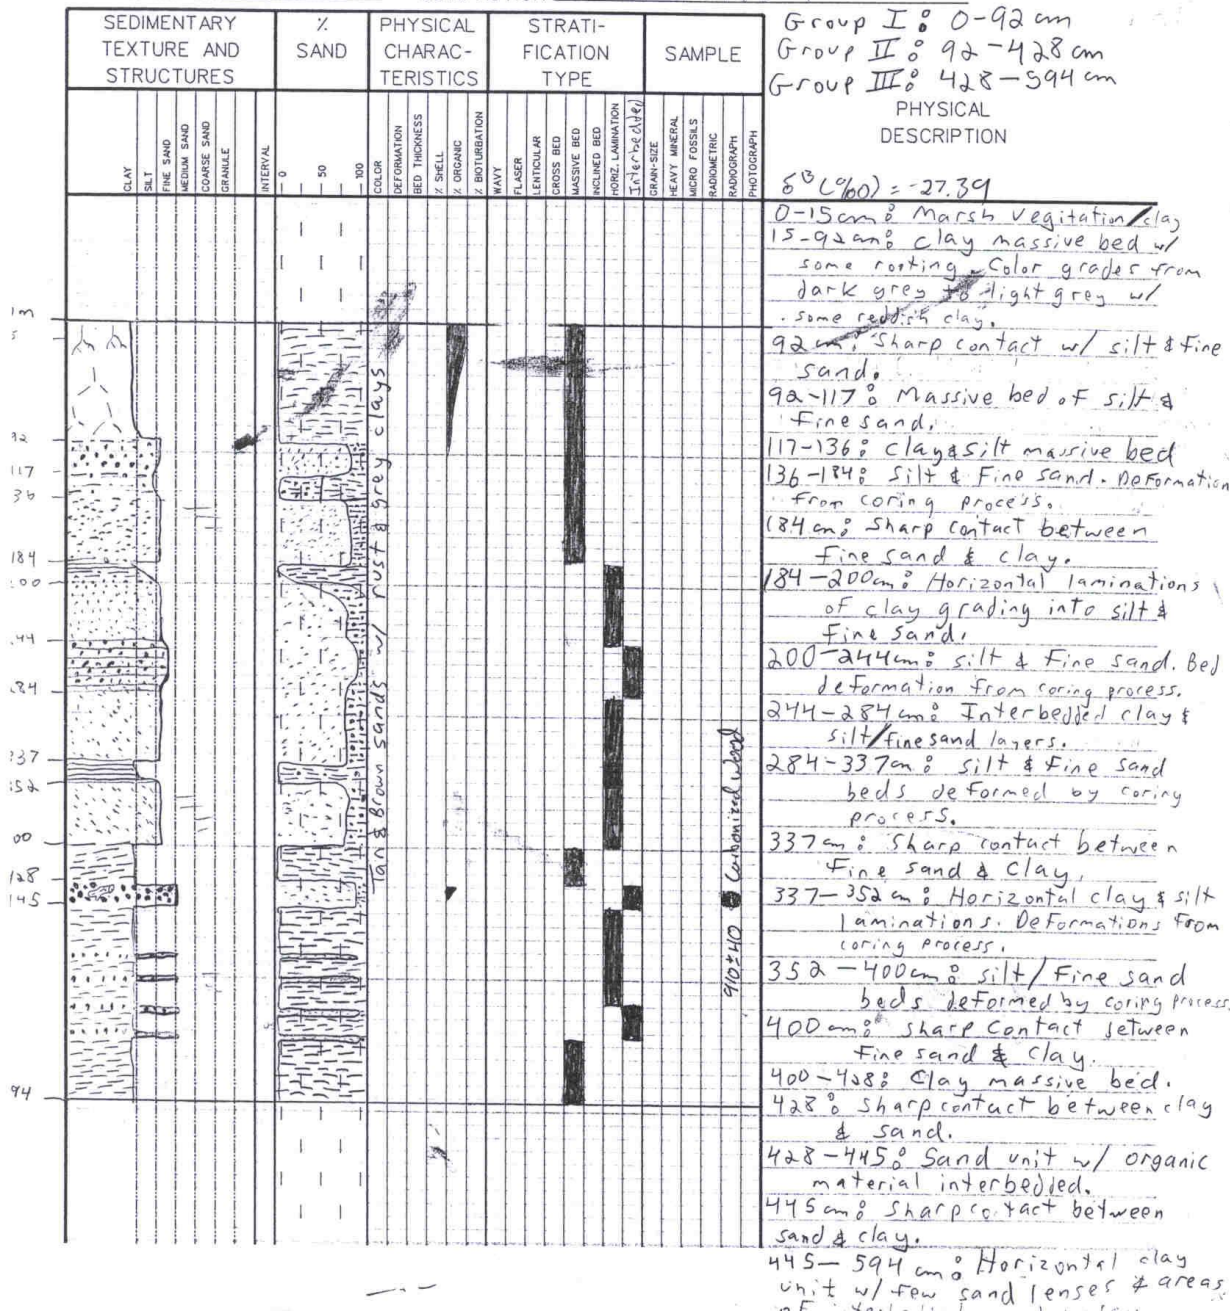 SEDIMENTARY
TEXTURE AND
STRUCTURES
%
SAND
PHYSICAL
CHARAC-
TERISTICS
STRATI-
FICATION
TYPE
SAMPLE
Group I: 0-92 cm
Group II: 92-428 cm
Group III: 428-594 cm
PHYSICAL
DESCRIPTION
CLAY
SILT
FINE SAND
MEDIUM SAND
COARSE SAND
GRANULE
INTERVAL
0
50
100
COLOR
DEFORMATION
BED THICKNESS
% SHELL
% ORGANIC
% BIOTURBATION
WAVY
FLASER
LENTICULAR
CROSS BED
MASSIVE BED
INCLINED BED
HORIZ. LAMINATION
Interbedded
GRAIN-SIZE
HEAVY MINERAL
MICRO FOSSILS
RADIOMETRIC
RADIOGRAPH
PHOTOGRAPH
δ13 (‰) = -27.39
0-15cm: Marsh Vegitation/clay
15-92cm: clay massive bed w/
some rooting. Color grades from
dark grey to light grey w/
some reddish clay.
92cm: Sharp contact w/ silt & fine
sand.
92-117: Massive bed of silt &
fine sand.
117-136: clay & silt massive bed
136-184: Silt & Fine sand. Deformation
from coring process.
184cm: Sharp contact between
fine sand & clay.
184-200cm: Horizontal laminations
of clay grading into silt &
fine sand.
200-244cm: silt & Fine sand. Bed
deformation from coring process.
244-284cm: Interbedded clay &
silt/fine sand layers.
284-337cm: silt & Fine sand
beds deformed by coring
process.
337cm: Sharp contact between
Fine sand & Clay.
337-352cm: Horizontal clay & silt
laminations. Deformations from
coring process.
352-400cm: silt/Fine sand
beds deformed by coring process.
400cm: sharp contact between
fine sand & clay.
400-428: Clay massive bed.
428: Sharp contact between clay
& sand.
428-445: Sand unit w/ organic
material interbedded.
445cm: Sharp contact between
sand & clay.
445-594cm: Horizontal clay
unit w/ few sand lenses & areas
1m
5
92
117
36
184
00
44
84
337
352
00
128
145
94
Tan & Brown sands w/ rust & grey clays
910±40 Carbonized wood